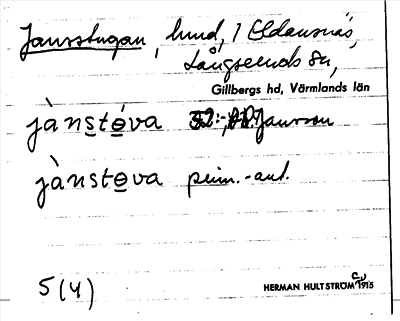 Jansstugan, hmd, i Eldansnäs,
Långseruds sn,
Gillbergs hd, Värmlands län
jànste̱va Jansson
jànste̱va prim.-ant.
5(4)
HERMAN HULTSTRÖM 1915